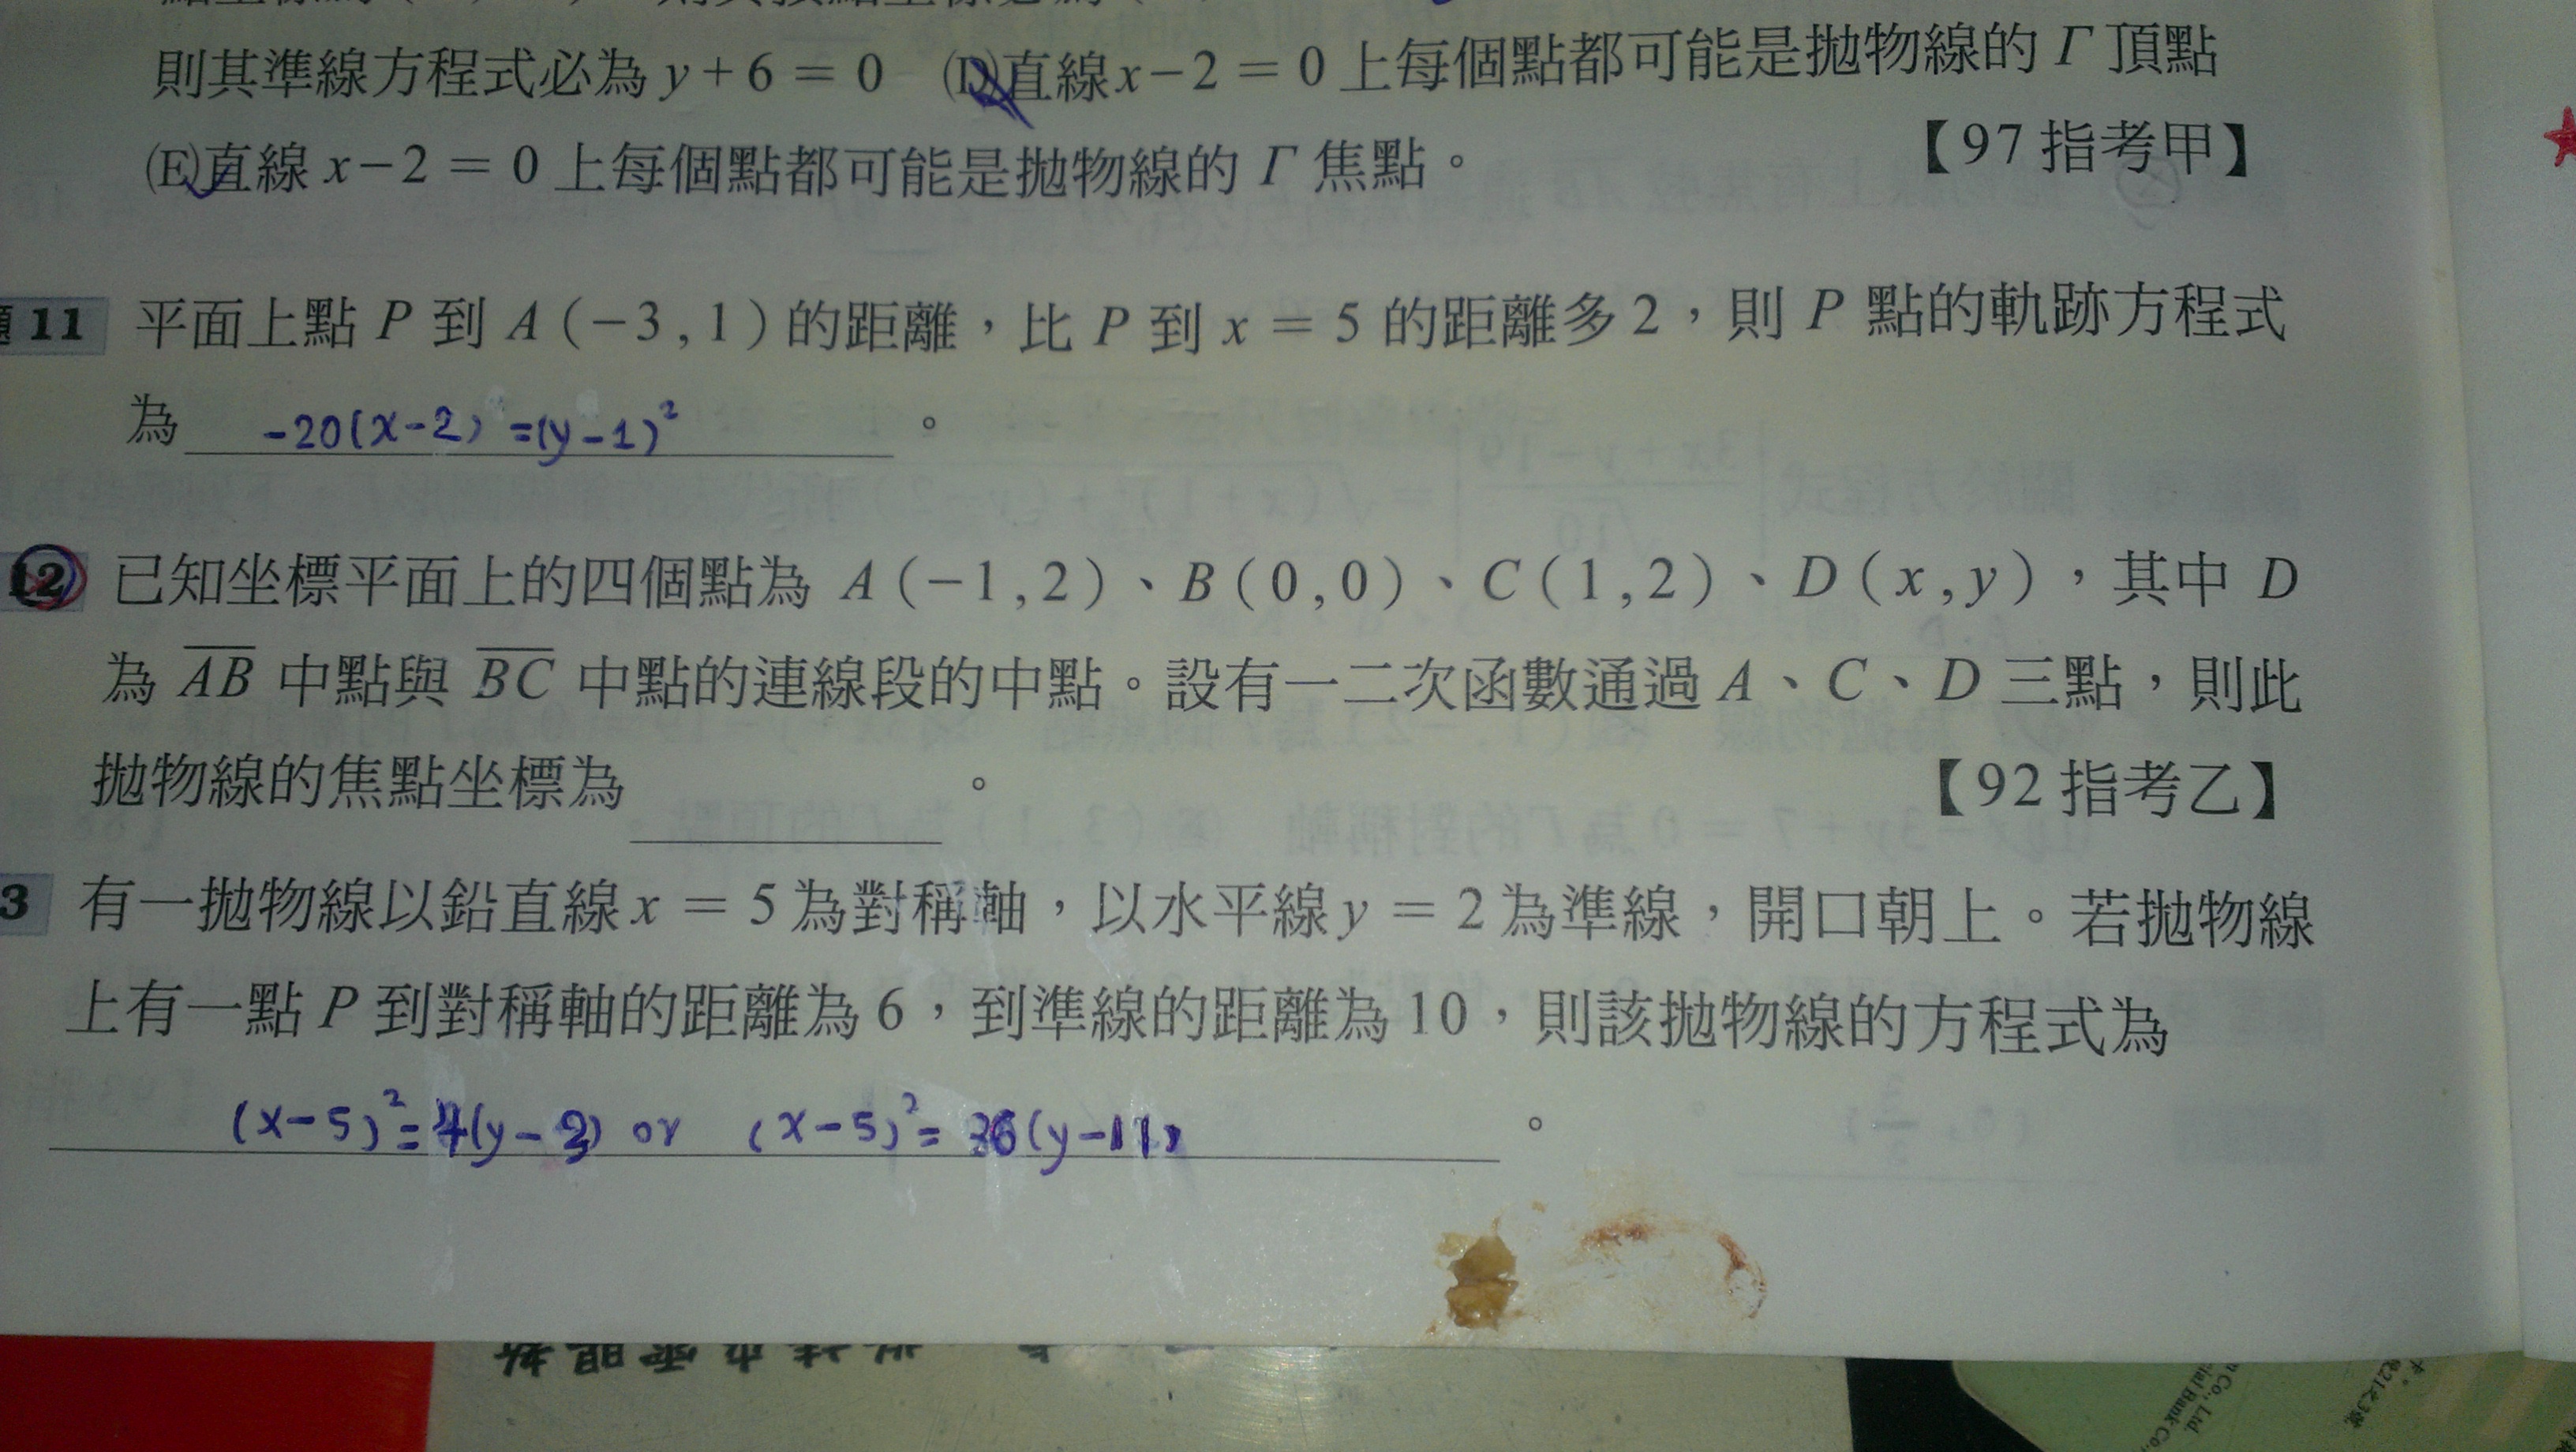 則其準線方程式必為 y+6 = 0 (D)直線 x−2 = 0 上每個點都可能是拋物線的 Γ 頂點
(E)直線 x−2 = 0 上每個點都可能是拋物線的 Γ 焦點。 【97 指考甲】
題 11 平面上點 P 到 A (−3 , 1) 的距離,比 P 到 x = 5 的距離多 2,則 P 點的軌跡方程式
為 -20(x-2) =(y-1)² 。
12 已知坐標平面上的四個點為 A (−1 , 2)、B (0 , 0)、C (1 , 2)、D (x , y),其中 D
為 A̅B̅ 中點與 B̅C̅ 中點的連線段的中點。設有一二次函數通過 A、C、D 三點,則此
拋物線的焦點坐標為 。 【92 指考乙】
3 有一拋物線以鉛直線 x = 5 為對稱軸,以水平線 y = 2 為準線,開口朝上。若拋物線
上有一點 P 到對稱軸的距離為 6,到準線的距離為 10,則該拋物線的方程式為
(x-5)²= 4(y-3) or (x-5)²= 36(y-11) 。